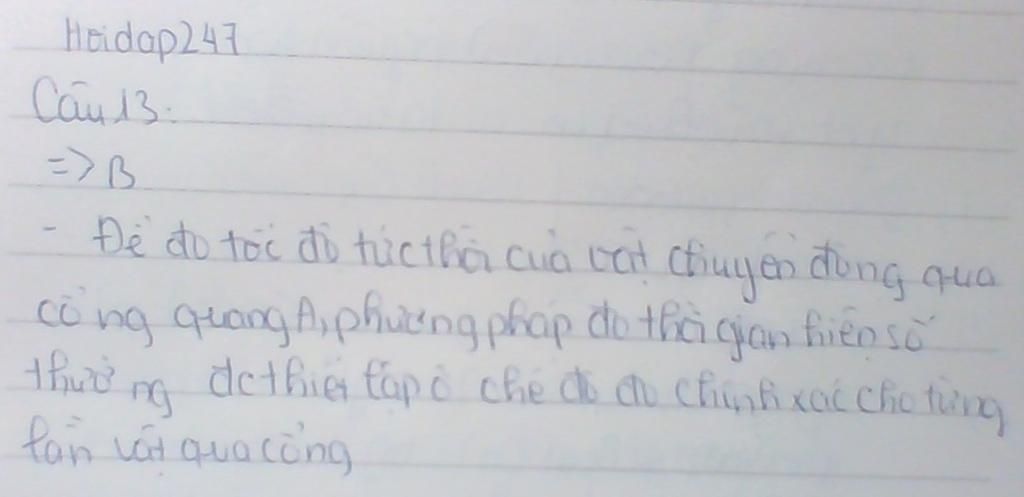 Hoidap247
Câu 13:
=> B
- Để đo tốc độ tức thời của vật chuyển động qua
cổng quang A, phương pháp đo thời gian hiện số
thường đc thiết lập ở chế độ đo chính xác cho từng
lần vật qua cổng